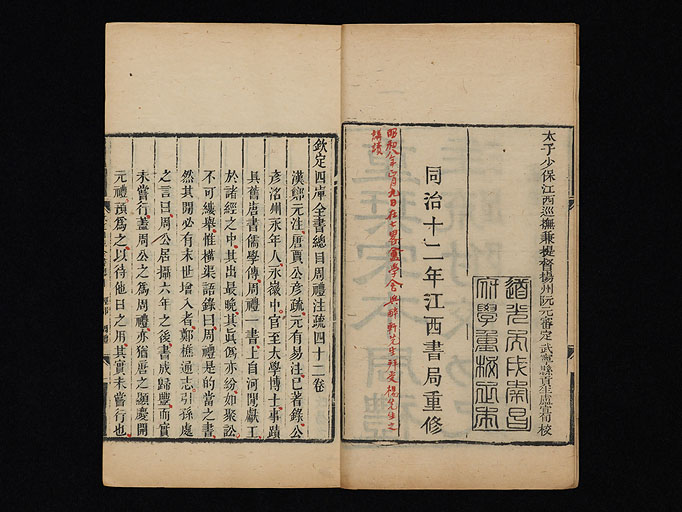 太子少保江西巡撫兼提督揚州阮元審定武寧縣貢生盧宣旬校
道光丙戌南昌
府學重校正本
同治十二年江西書局重修
昭和八年月九日在七畧盦學舍與靜軒先生拜受楊先生之
講讀
欽定四庫全書總目周禮注疏四十二卷
漢鄭元注唐賈公彥疏元有易注已著錄公
彥洺州永年人永徽中官至太學博士事蹟
具舊唐書儒學傳周禮一書上自河間獻王
於諸經之中其出最晚其眞僞亦紛如聚訟
不可縷舉惟橫渠語錄曰周禮是的當之書
然其間必有末世增入者鄭樵通志引孫處
之言曰周公居攝六年之後書成歸豐而實
未嘗行蓋周公之爲周禮亦猶唐之顯慶開
元禮預爲之以待他日之用其實未嘗行也